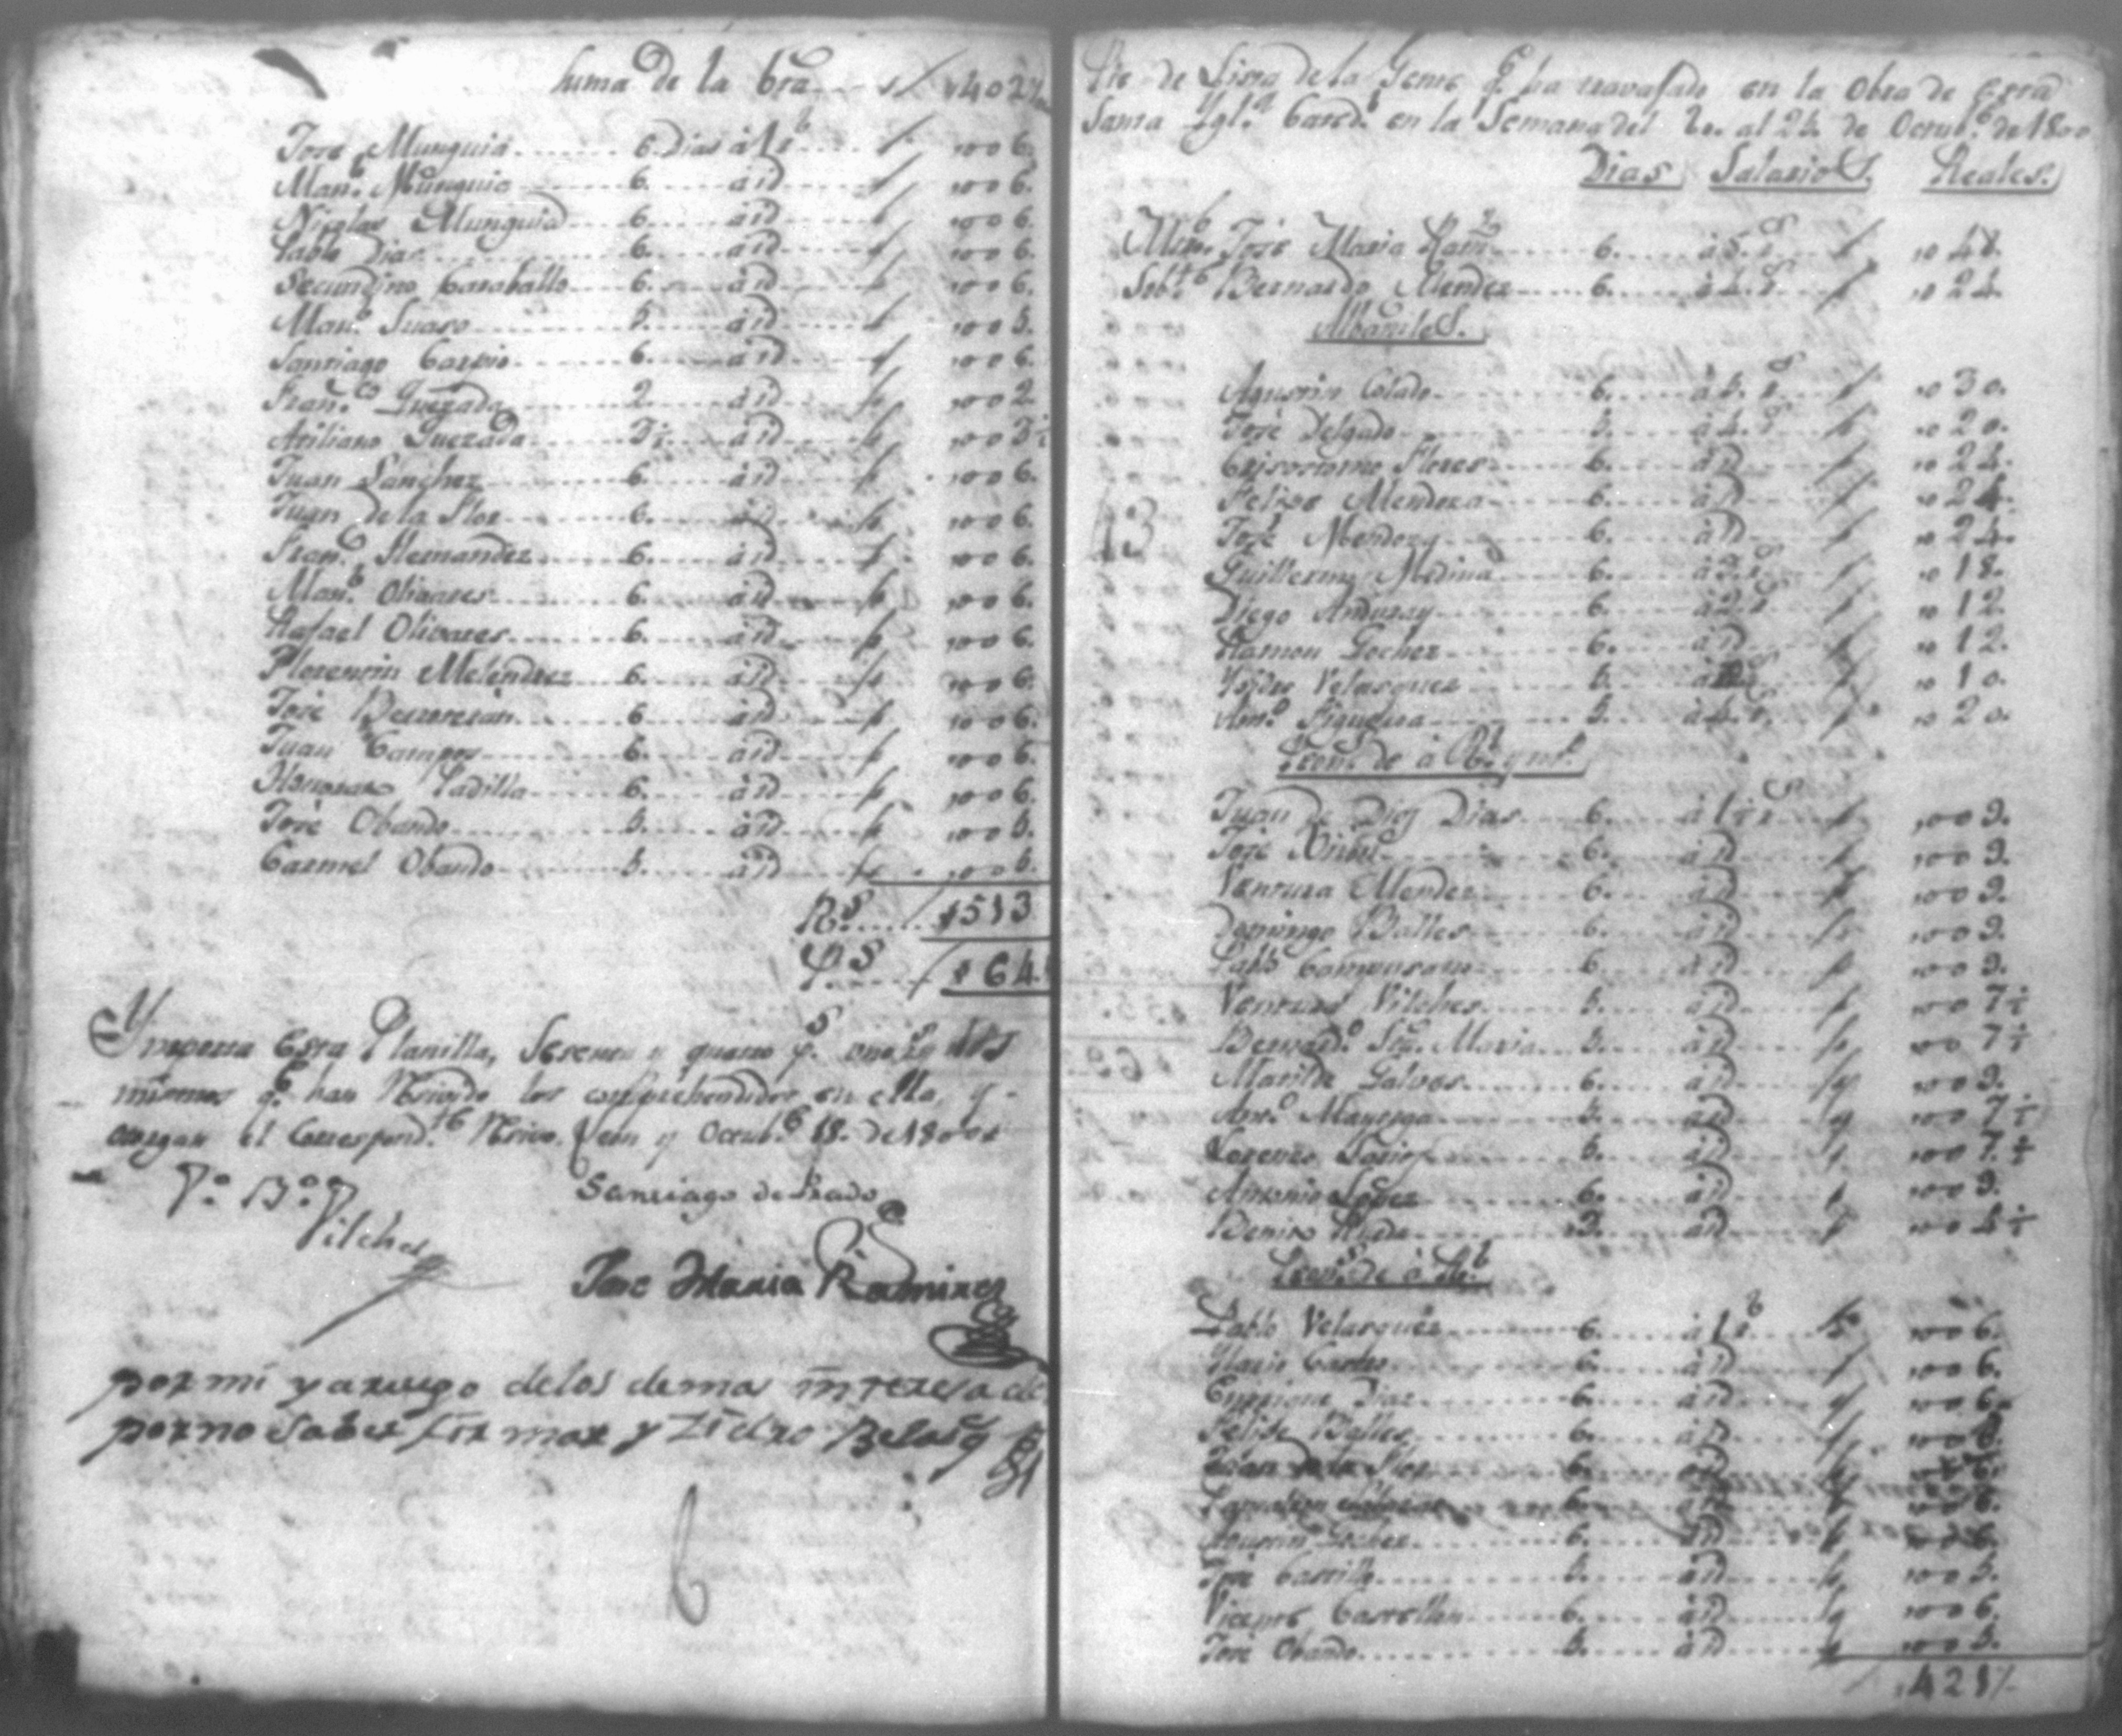 Suma de la bta..... 402½
José Munguia....... 6. Dias á 1 r.l.... 006.
Man.l Munguia....... 6...... á id...... 006.
Nicolas Munguia....... 6...... á id...... 006.
Pablo Dias....... 6...... á id...... 006.
Secundino Caraballo....... 6...... á id...... 006.
Man.l Suaso....... 5...... á id...... 005.
Santiago Carpio....... 6...... á id...... 006.
Fran.co Quezada....... 2...... á id...... 002.
Atiliano Quezada....... 3½...... á id...... 003½
Juan Sanchez....... 6...... á id...... 006.
Juan de la Flor....... 6...... á id...... 006.
Fran.co Hernandez....... 6...... á id...... 006.
Man.l Olivares....... 6...... á id...... 006.
Rafael Olivares....... 6...... á id...... 006.
Florentin Melendrez....... 6...... á id...... 006.
José....... 6...... á id...... 006.
Juan Campos....... 6...... á id...... 006.
Padilla....... 6...... á id...... 006.
José Obando....... 5...... á id...... 005.
Carmel Obando....... 5...... á id...... 005.
R.s..... 513
P.s..... 64.1
Ymporta esta Planilla, Sesenta y quatro p.s uno r.l los
mismos q.e han Resivido los comprehendidos en ella, y
otorgan el Correspond.te Resivo. Leon y Octub.e 18. de 1800
V.o B.o
Vilches
Santiago de Prado
Jose Maria Ramires
por mi y a ruego de los demas interesade
por no saber firmar y Zidro Belasq
6
Pie de Lista de la Gente q.e ha travajado en la Obra de esta
Santa Ygl.a Cated.l en la Semana del 20. al 25. de Octub.e de 1800
Dias Salarios. Reales.
Mro. José Maria Ram.z..... 6..... á 8. r.s..... 48.
Sob.te Bernardo Mendez..... 6..... á 4. r.s..... 24.
Albañiles.
Agustin Colado..... 6..... á 5. r.s..... 30.
José Delgado..... 5..... á 4. r.s..... 20.
Crisostomo Flores..... 6..... á id..... 24.
Felipe Mendoza..... 6..... á id..... 24.
13
José Mendoza..... 6..... á id..... 24.
Guillermo Medina..... 6..... á 3. r.s..... 18.
Diego Anduray..... 6..... á 2. r.s..... 12.
Ramon Gochez..... 6..... á id..... 12.
Ysidro Velasquez..... 5..... á 2 r.s..... 10.
Ant.o Figueroa..... 5..... á 4. r.s..... 20.
Peon.s de á R.l y m.o
Juan de Dios Dias..... 6..... á 1½ r.s..... 009.
José..... 6..... á id..... 009.
Ventura Mendez..... 6..... á id..... 009.
Domingo Balles..... 6..... á id..... 009.
Pablo Campusano..... 6..... á id..... 009.
Ventura Vilches..... 5..... á id..... 007½
Bernard.o Sta. Maria..... 5..... á id..... 007½
Matilde Galvos..... 6..... á id..... 009.
Ant.o Mayorga..... 5..... á id..... 007½
Lorenzo..... 5..... á id..... 007½
Antonio Lopez..... 6..... á id..... 009.
Benito..... 3..... á id..... 004½
Peon.s de á R.l
Pablo Velasquez..... 6..... á 1 r.l..... 006.
..... 6..... á id..... 006.
Dias..... 6..... á id..... 006.
Felipe Balles..... 6..... á id..... 006.
Juan de la Flor..... 6..... á id..... 006.
..... 6..... á id..... 006.
Gochez..... 6..... á id..... 006.
José Castillo..... 5..... á id..... 005.
Vicente Castellon..... 6..... á id..... 006.
José Obando..... 5..... á id..... 005.
421½